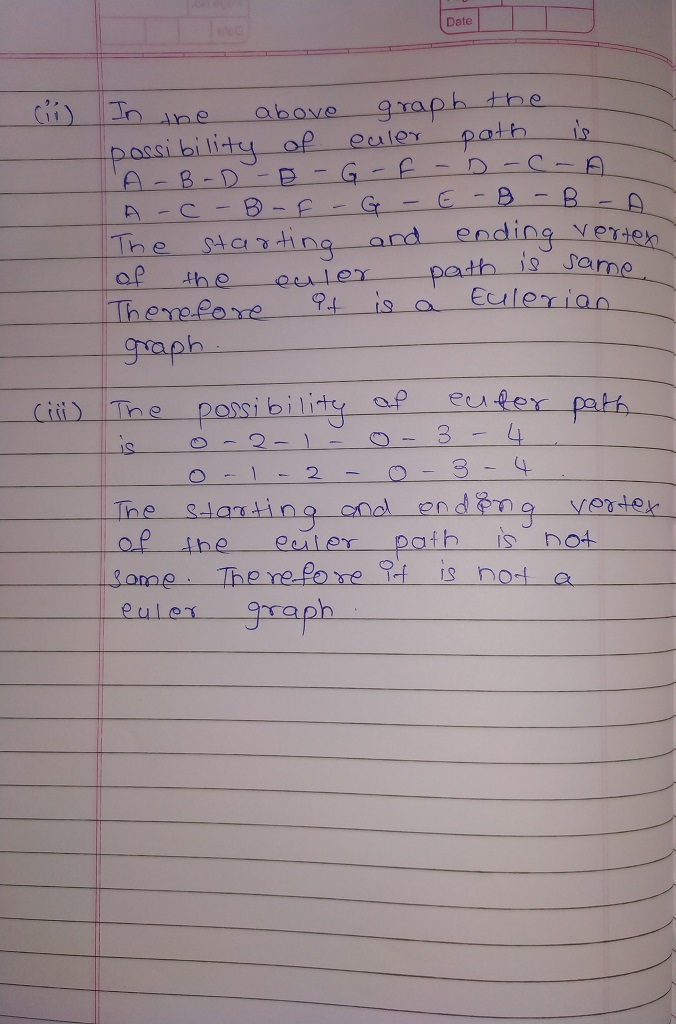 Date
(ii) In the above graph the
possibility of euler path is
A - B - D - E - G - F - D - C - A
A - C - D - F - G - E - D - B - A
The starting and ending vertex
of the euler path is same.
Therefore it is a Eulerian
graph.
(iii) The possibility of euler path
is 0 - 2 - 1 - 0 - 3 - 4
0 - 1 - 2 - 0 - 3 - 4.
The starting and ending vertex
of the euler path is not
same. Therefore it is not a
euler graph.